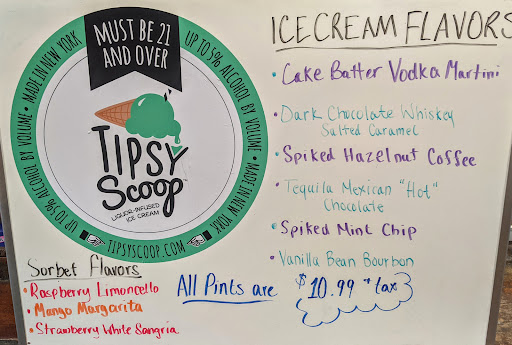 MUST BE 21
AND OVER
MADE IN NEW YORK • UP TO 5% ALCOHOL BY VOLUME •
MADE IN NEW YORK • UP TO 5% ALCOHOL BY VOLUME •
TIPSY
SCOOP
LIQUOR-INFUSED
ICE CREAM
TIPSYSCOOP.COM
Sorbet Flavors
• Raspberry Limoncello
• Mango Margarita
• Strawberry White Sangria
ICE CREAM FLAVORS
• Cake Batter Vodka Martini
• Dark Chocolate Whiskey
Salted Caramel
• Spiked Hazelnut Coffee
• Tequila Mexican "Hot"
Chocolate
• Spiked Mint Chip
• Vanilla Bean Bourbon
All Pints are $10.99 + tax